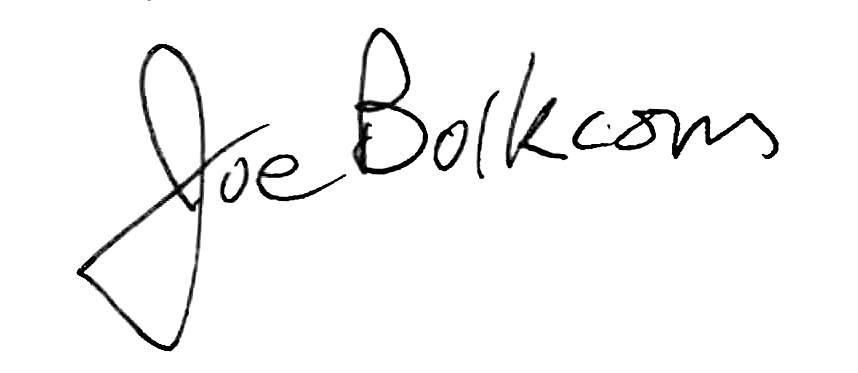 Joe Bolkcom